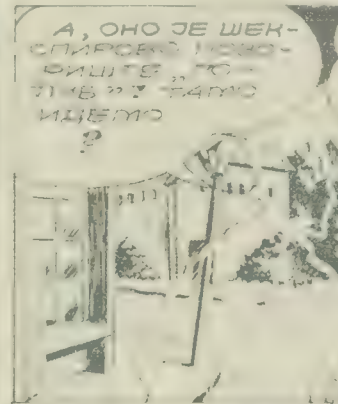 А, ОНО ЈЕ ШЕК-
СПИРОВО ПОЗО-
РИШТЕ
ТАМО
ИДЕМО
?